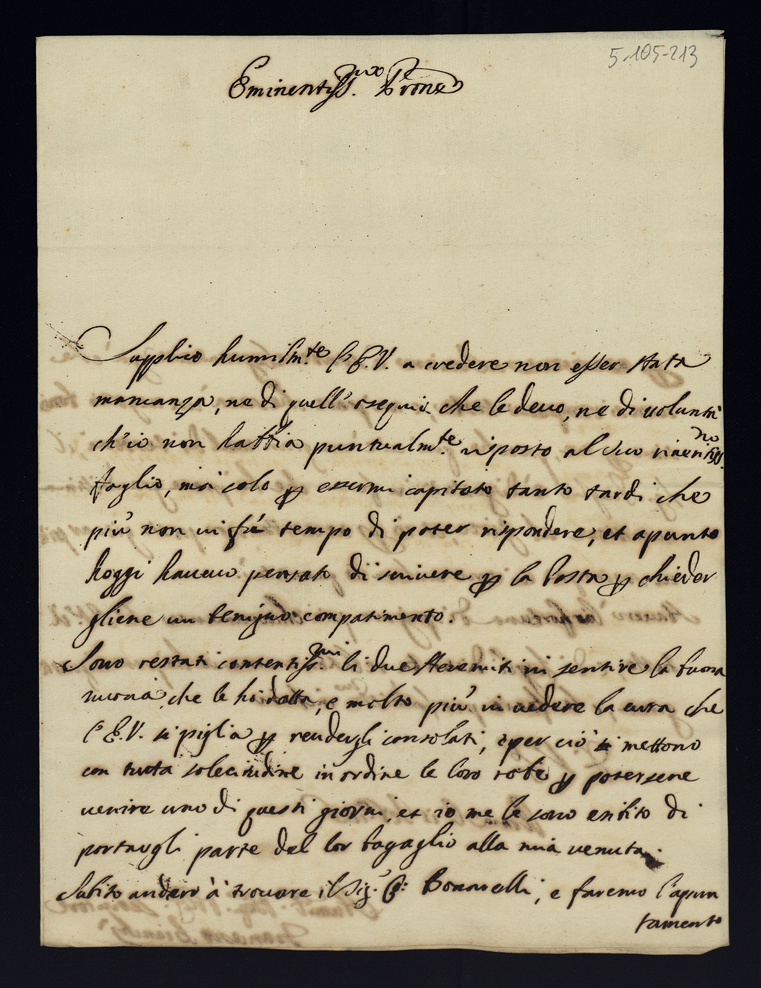 5-105-213
Eminentiss.mo P.rone
Supplico humilm.te l'E.V. a credere non esser stata
mancanza, ne di quell'ossequio che le devo, ne di volontà
ch'io non habbia puntualm.te risposto al suo riveritiss.mo
foglio, mà solo per essermi capitato tanto tardi che
più non vi fù tempo di poter rispondere, et apunto
hoggi havevo pensato di scrivere per la Posta per chieder
gliene un benigno compatimento.
Sono restati contentiss.mi li due in sentire la buona
nuova, che le hò datta, e molto più in vedere la cura che
l'E.V. si piglia per rendergli consolati, e per ciò si mettono
con tutta solecitudine in ordine le loro robe per potersene
venire uno di questi giorni, et io me le sono esibito di
portargli parte del lor bagaglio alla mia venuta.
Subito andarò à trovare il Sig.r C. Bonarelli, e faremo l'apun
tamento